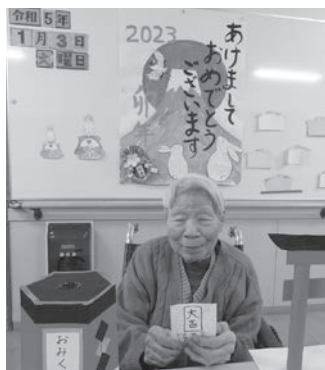 令和5年
1月3日
火曜日
2023
卯
あけまして
おめでとう
ございます
大吉
おみく